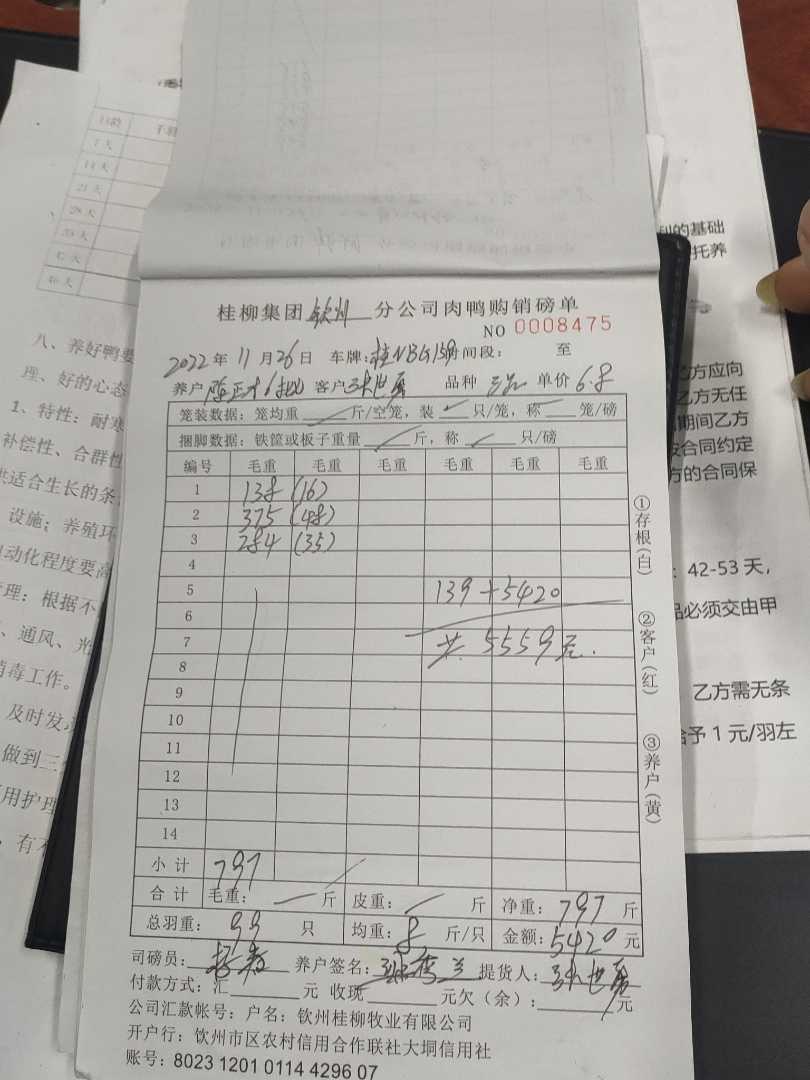 桂柳集团 钦州 分公司肉鸭购销磅单
NO 0008475
2022年 11月26日 车牌:桂NBG159 时间段: 至
养户 客户 品种 单价 6.8
笼装数据: 笼均重 斤/空笼, 装 只/笼, 称 笼/磅
捆脚数据: 铁筐或板子重量 斤, 称 只/磅
编号 毛重 毛重 毛重 毛重 毛重 毛重
1 138 (16)
2 375 (48)
3 284 (35)
4
5 139+5420
6
7 共 5559元.
8
9
10
11
12
13
14
小计 797
合计 毛重: 斤 皮重: 斤 净重: 797 斤
总羽重: 99 只 均重: 8 斤/只 金额: 5420元
司磅员: 养户签名: 提货人:
付款方式: 汇 元 收现 元欠(余): 元
公司汇款帐号: 户名: 钦州桂柳牧业有限公司
开户行: 钦州市区农村信用合作联社大垌信用社
账号: 8023 1201 0114 4296 07
①存根(白)
②客户(红)
③养户(黄)
日龄
7天
14天
21天
28天
35天
42天
八、养好鸭要
理、好的心态
1、特性: 耐寒
补偿性、合群性
供适合生长的条
设施; 养殖环
自动化程度要高
管理: 根据不
、通风、光
消毒工作。
及时发
做到三
用护理
有不
的基础
托养
乙方应向
乙方无任
期间乙方
按合同约定
方的合同保
: 42-53 天,
品必须交由甲
乙方需无条
给予 1 元/羽左